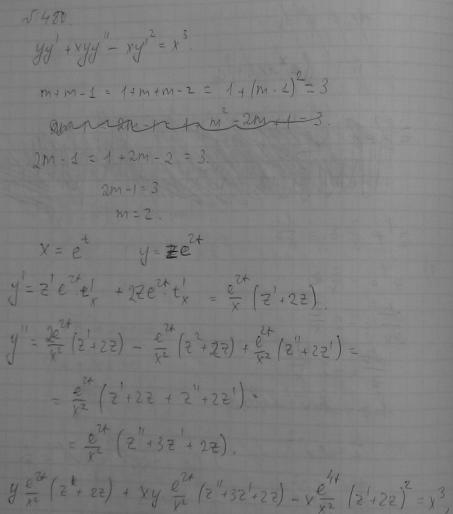 №480.
yy' + xyy'' - xy'² = x³.
m+m-1 = 1+m+m-2 = 1+(m-1)² = 3
m² - 2m + 1 = 3.
2m-1 = 1+2m-2 = 3.
2m-1=3
m=2.
x = e^t y = ze^{2t}
y' = z'e^{2t}·t'ₓ + 2ze^{2t}·t'ₓ = e^{2t}/x (z'+2z).
y'' = 2e^{2t}/x² (z'+2z) - e^{2t}/x² (z²+2z) + e^{2t}/x² (z''+2z') =
= e^{2t}/x² (z'+2z + z''+2z').
= e^{2t}/x² (z''+3z'+2z).
y e^{2t}/x (z'+2z) + xy e^{2t}/x² (z''+3z'+2z) - x e^{4t}/x² (z'+2z)² = x³,